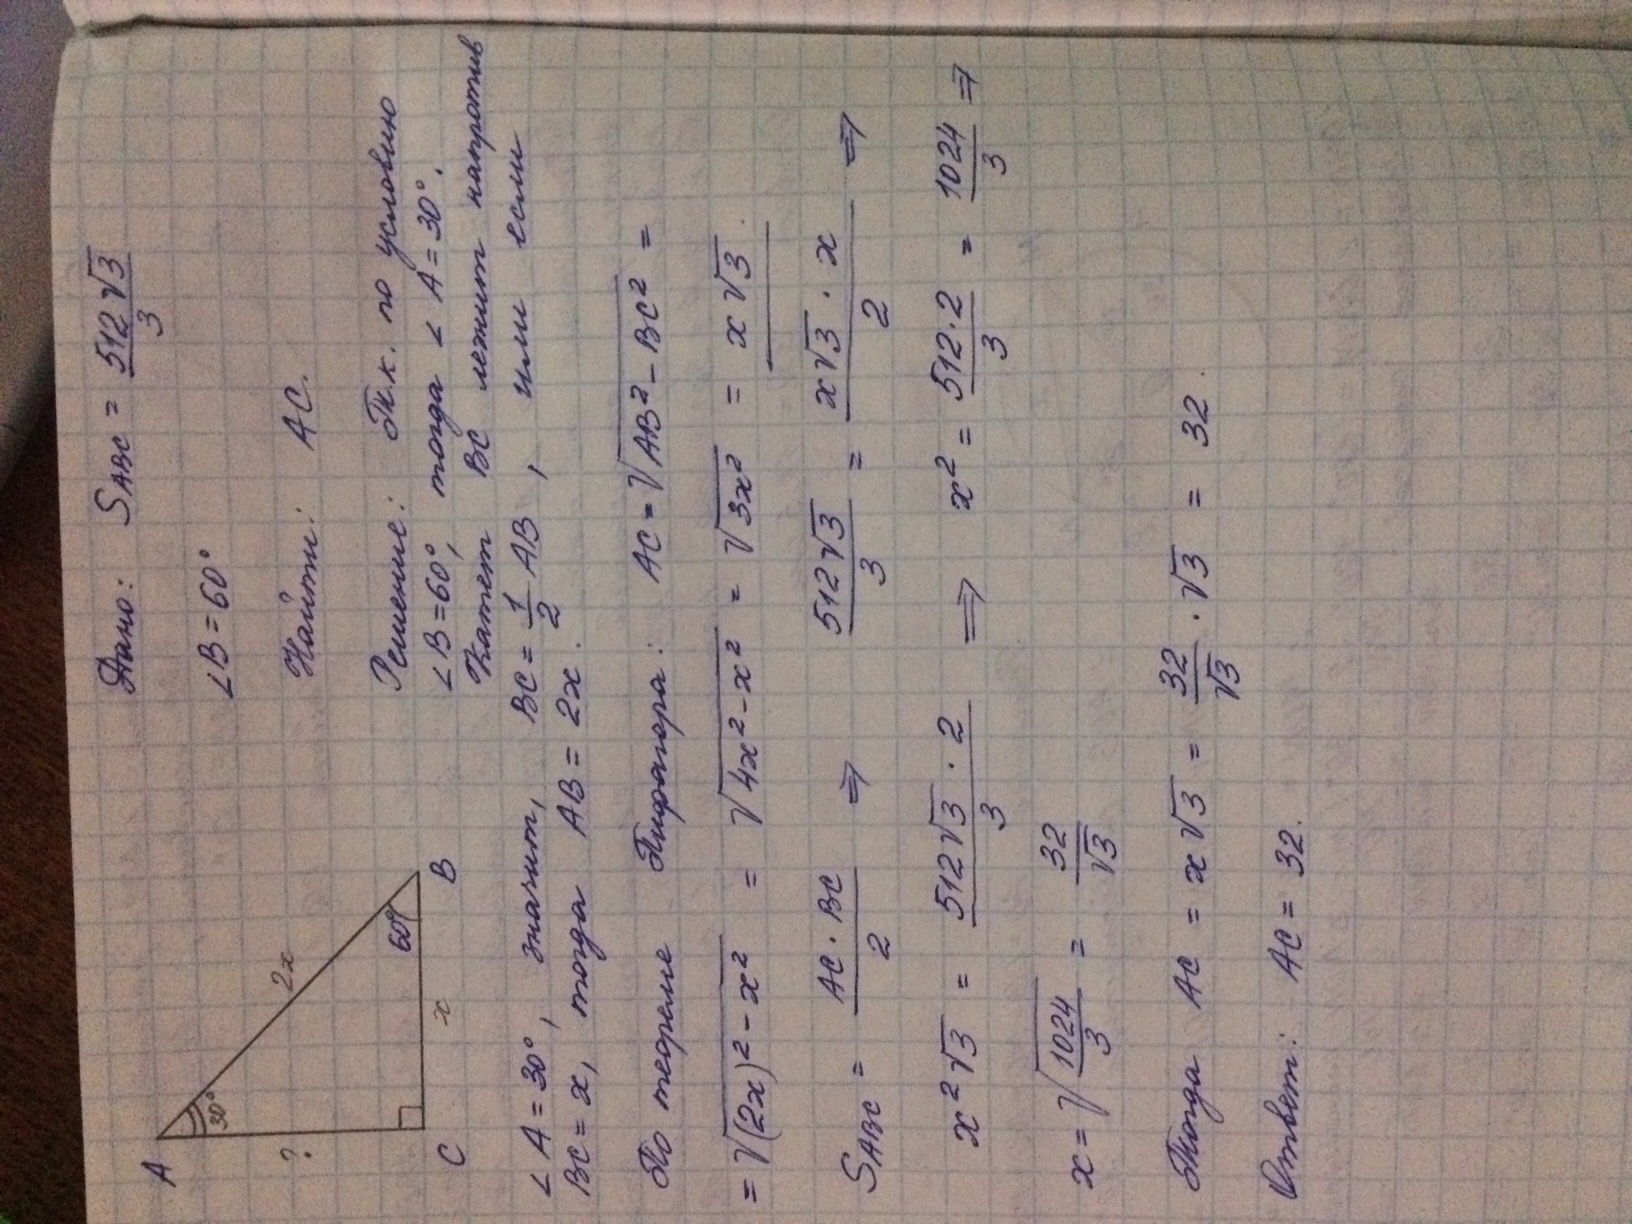 A
30°
?
2x
60°
C
x
B
Дано: S_ABC = 512√3/3
∠B = 60°
Найти: AC.
Решение: Т.к. по условию
∠B = 60°, тогда ∠A = 30°.
Катет BC лежит напротив
∠A = 30°, значит, BC = 1/2 AB, или если
BC = x, тогда AB = 2x.
По теореме Пифагора: AC = √(AB² - BC²) =
= √((2x)² - x²) = √(4x² - x²) = √(3x²) = x√3.
S_ABC = AC · BC/2 ⇒ 512√3/3 = x√3 · x/2 ⇒
x²√3 = 512√3 · 2/3 ⇒ x² = 512·2/3 = 1024/3 ⇒
x = √(1024/3) = 32/√3
Тогда AC = x√3 = 32/√3 · √3 = 32.
Ответ: AC = 32.